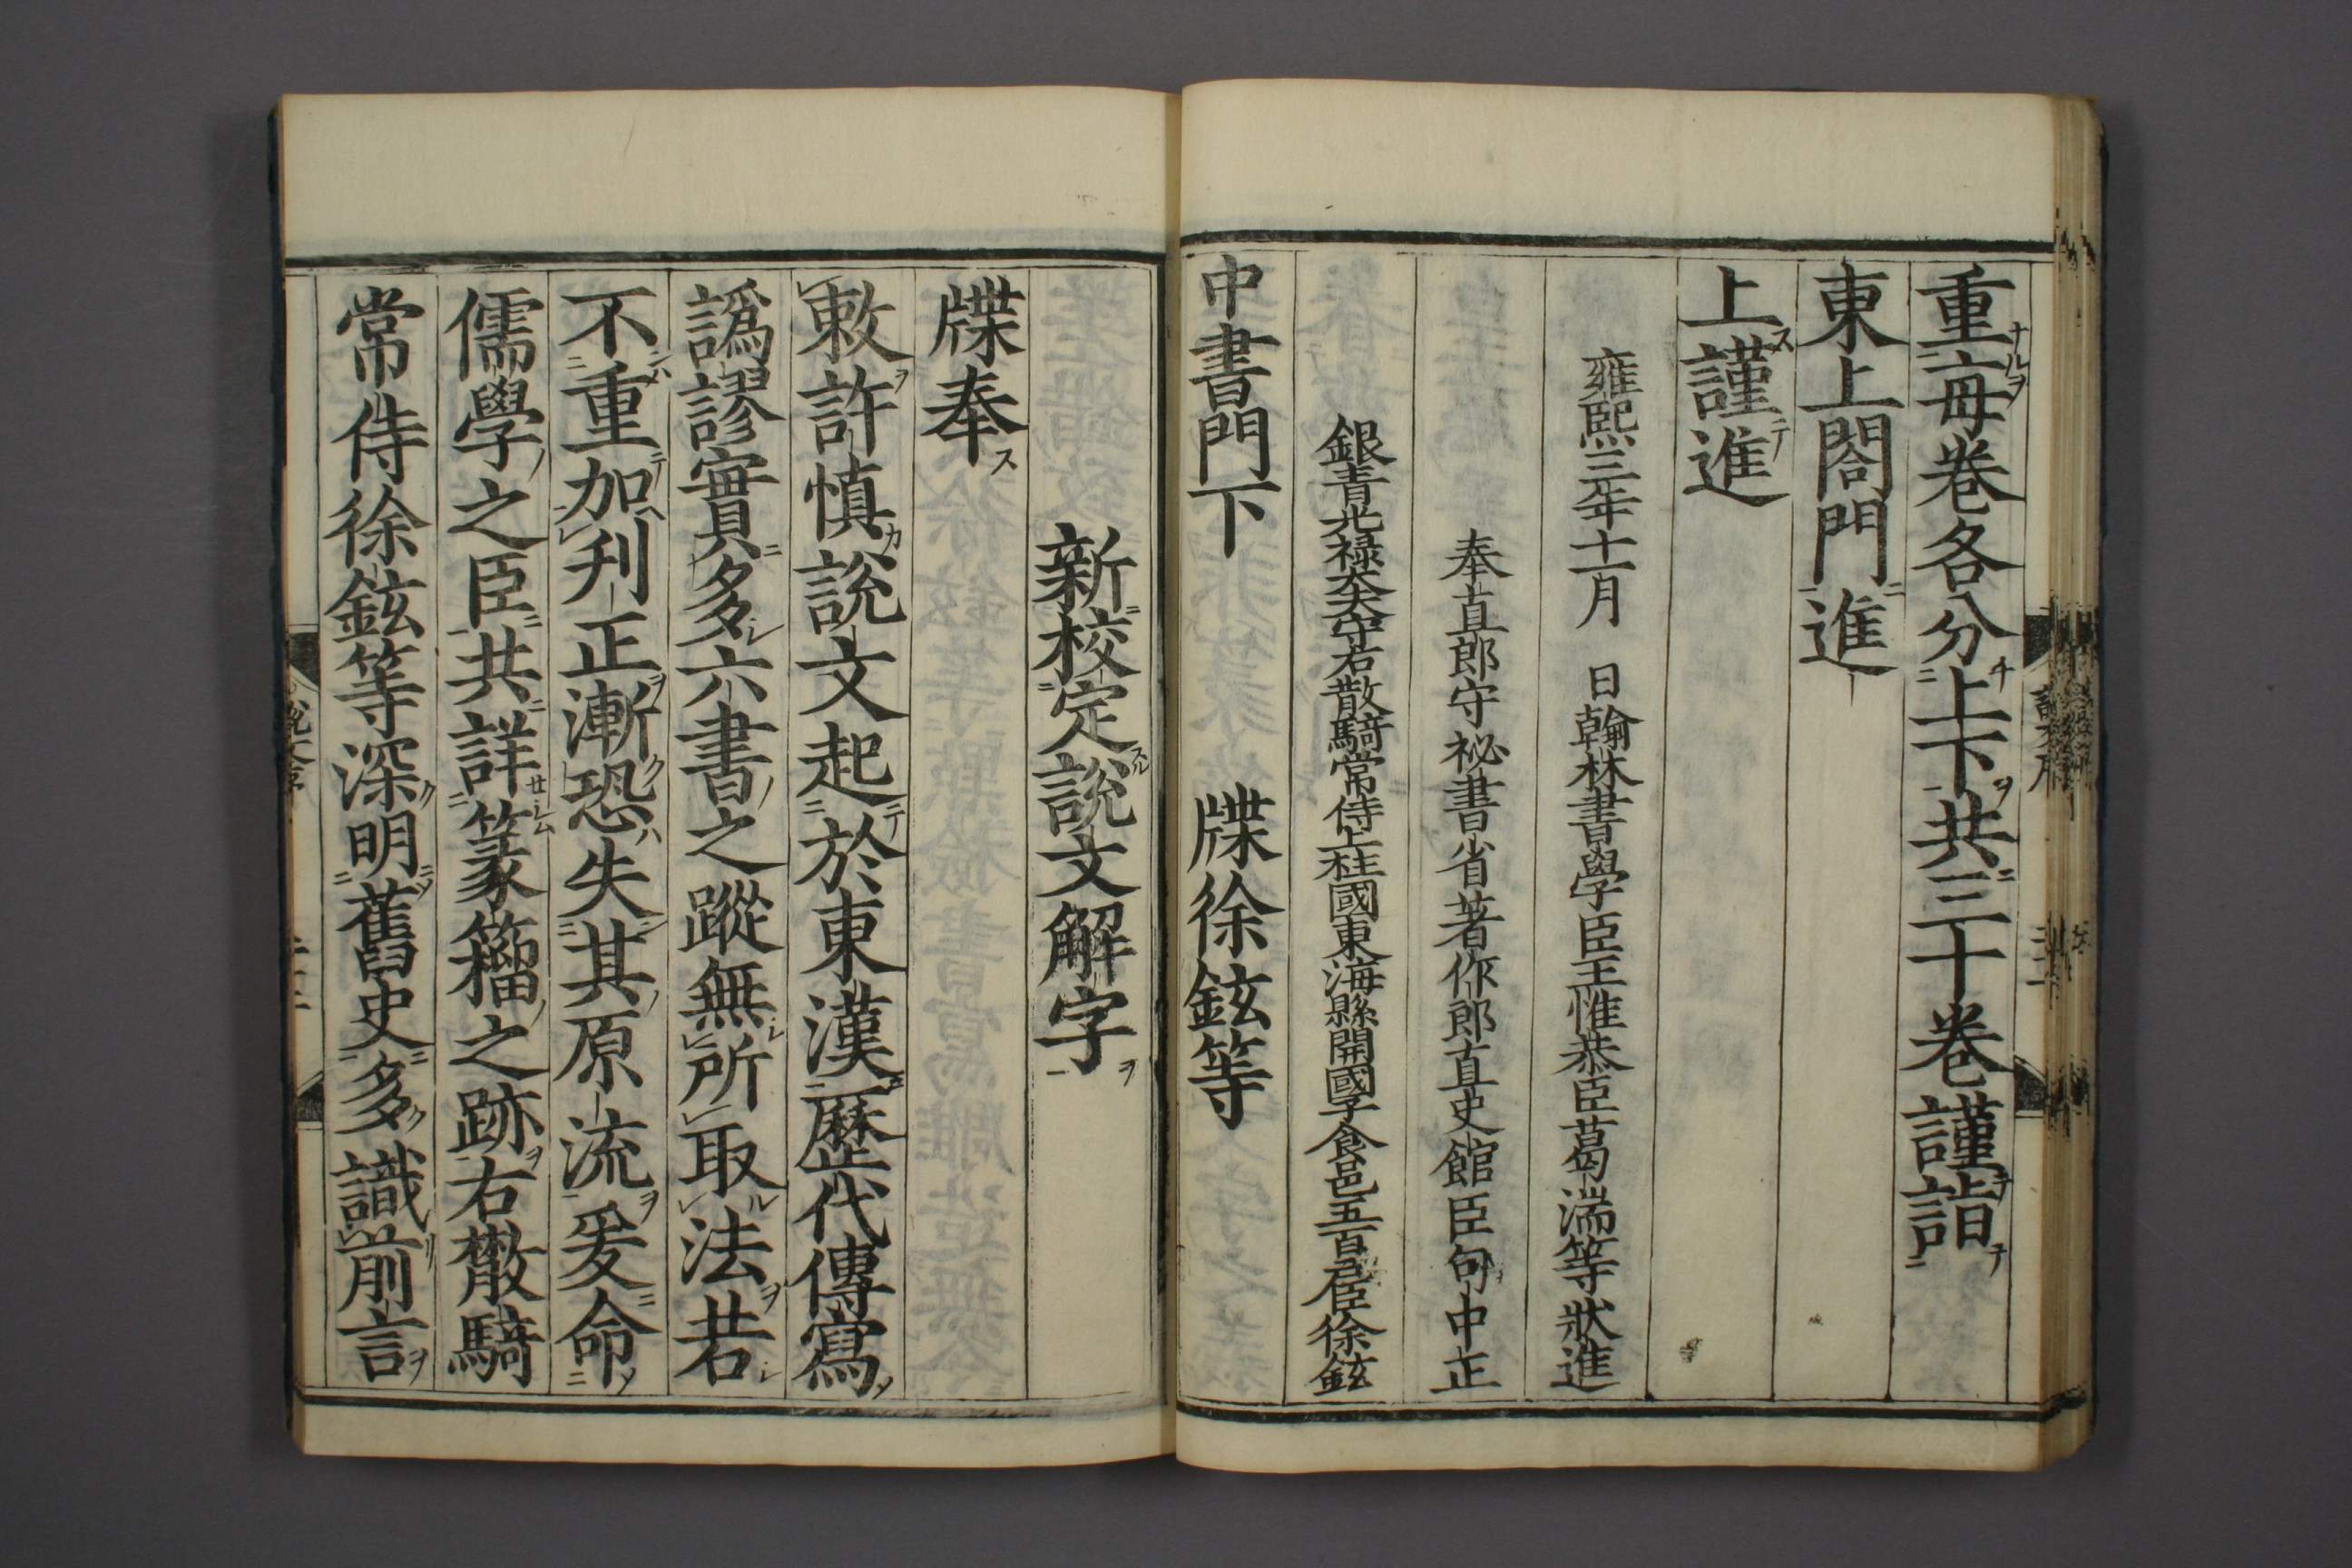 重亠毎卷各分上下共三十卷謹詣
東上閤門進
上謹進
雍熙三年十一月　日翰林書學臣王惟恭臣葛湍等狀進
奉直郎守祕書省著作郎直史館臣句中正
銀青光祿大夫守右散騎常侍上柱國東海縣開國子食邑五百戶臣徐鉉
中書門下　牒徐鉉等
新校定說文解字
牒奉
敕許慎說文起於東漢歷代傳寫
譌謬實多六書之蹤無所取法若
不重加刋正漸恐失其原流爰命
儒學之臣共詳篆籀之跡右散騎
常侍徐鉉等深明舊史多識前言